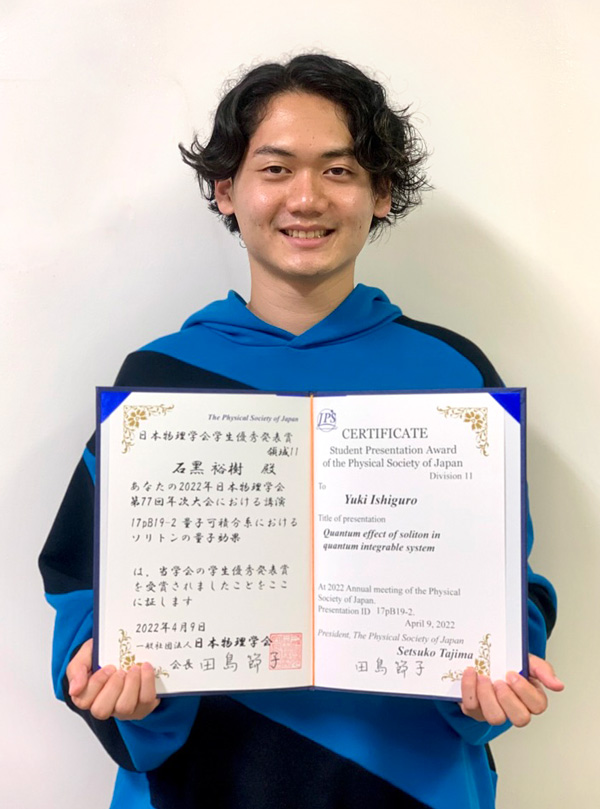 The Physical Society of Japan
日本物理学会学生優秀発表賞
領域11
石黒 裕樹 殿
あなたの2022年日本物理学会
第77回年次大会における講演
17pB19-2 量子可積分系における
ソリトンの量子効果
は、当学会の学生優秀発表賞
を受賞されましたことをここ
に証します
2022年4月9日
一般社団法人日本物理学会
会長 田島節子
JPS
CERTIFICATE
Student Presentation Award
of the Physical Society of Japan
Division 11
To
Yuki Ishiguro
Title of presentation
Quantum effect of soliton in
quantum integrable system
At 2022 Annual meeting of the Physical
Society of Japan.
Presentation ID 17pB19-2.
April 9, 2022
President, The Physical Society of Japan
Setsuko Tajima
田島節子